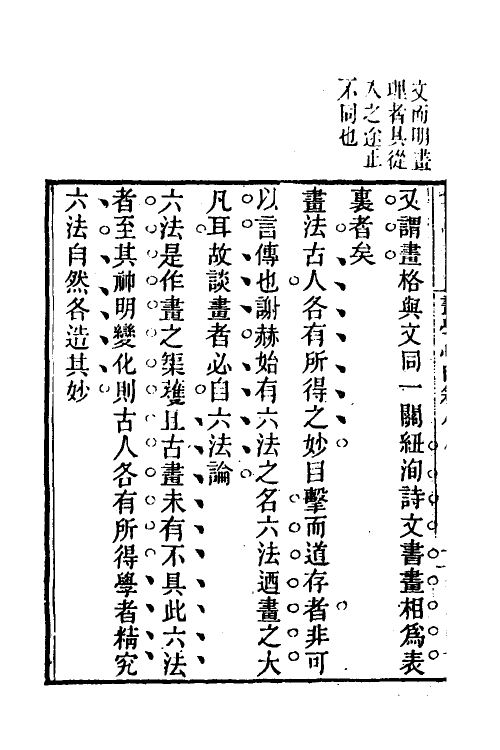 文而明畫
理者其從
入之途正
不同也
又謂畫格與文同一關紐洵詩文書畫相爲表
裏者矣
畫法古人各有所得之妙目擊而道存者非可
以言傳也謝赫始有六法之名六法迺畫之大
凡耳故談畫者必自六法論
六法是作畫之榘矱且古畫未有不具此六法
者至其神明變化則古人各有所得學者精究
六法自然各造其妙